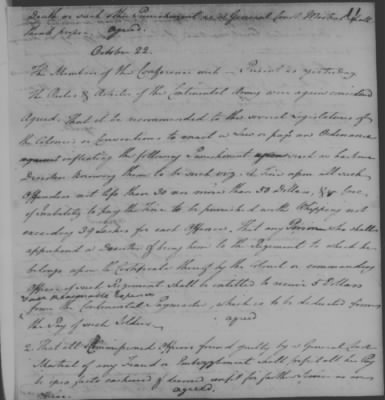 Death or such other Punishment as a General Court Martial shall
think proper. agreed.
October 22.
The Members of the Conference met — Present as yesterday
The Rules & Articles of the Continental Army were again considered
Agreed. That it be recommended to the several Legislatures of
the Colonies or Conventions to enact a Law or pass an Ordinance
inflicting the following Punishment upon such as harbour
Deserters knowing them to be such viz. A Fine upon all such
Offenders not less than 30 nor more than 50 Dollars, & in Case
of inability to pay the Fine to be punished with Whipping not
exceeding 39 Lashes for each Offence. That any Person who shall
apprehend a Deserter & bring him to the Regiment to which he
belongs upon a Certificate thereof by the Colonel or commanding
Officer of such Regiment shall be entitled to receive 5 Dollars
& reasonable Expences
from the Continental Paymaster, which is to be deducted from
the Pay of such Soldier. agreed
2. That all Commissioned Officers found guilty by a General Court
Martial of any Fraud or Embezzlement shall forfeit all his Pay
be ipso facto cashiered & deemed unfit for further Service as an
Officer. agreed.